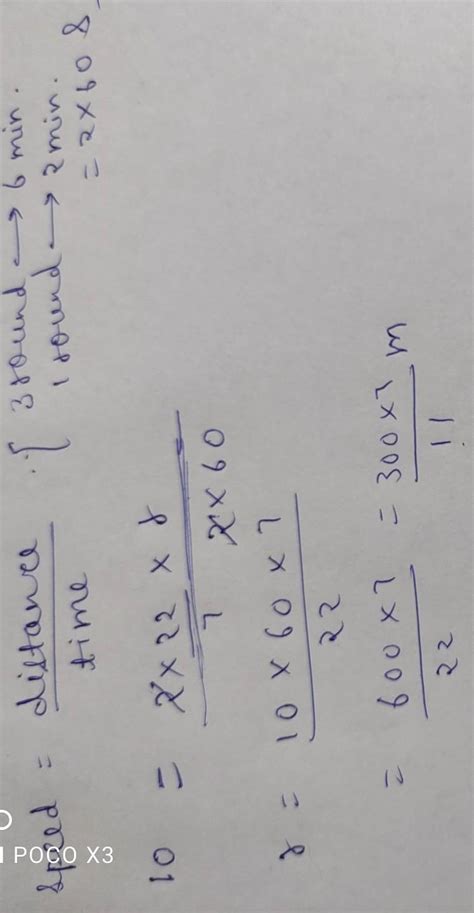 Speed = distance / time { 3 round → 6 min.
1 round → 2 min.
= 2 × 60 s
10 = 2 × 22 × r / 7 / 2 × 60
r = 10 × 60 × 7 / 22
= 600 × 7 / 22 = 300 × 7 / 11 m
POCO X3